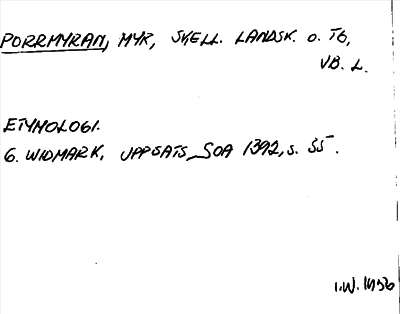 PORRMYRAN, MYR, SKELL. LANDSK. O. TG,
VB. L.
ETYMOLOGI.
G. WIDMARK, UPPSATS, SOA 1392, S. 35.
I.W. 1956